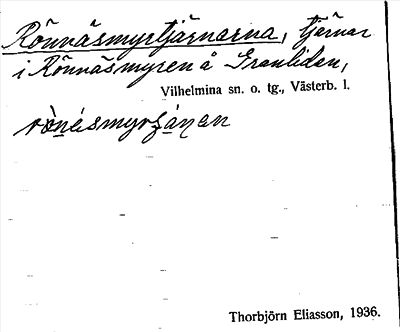 Rönnäsmyrtjärnarna, tjärnar
i Rönnäsmyren å Granliden,
Vilhelmina sn. o. tg., Västerb. l.
Thorbjörn Eliasson, 1936.